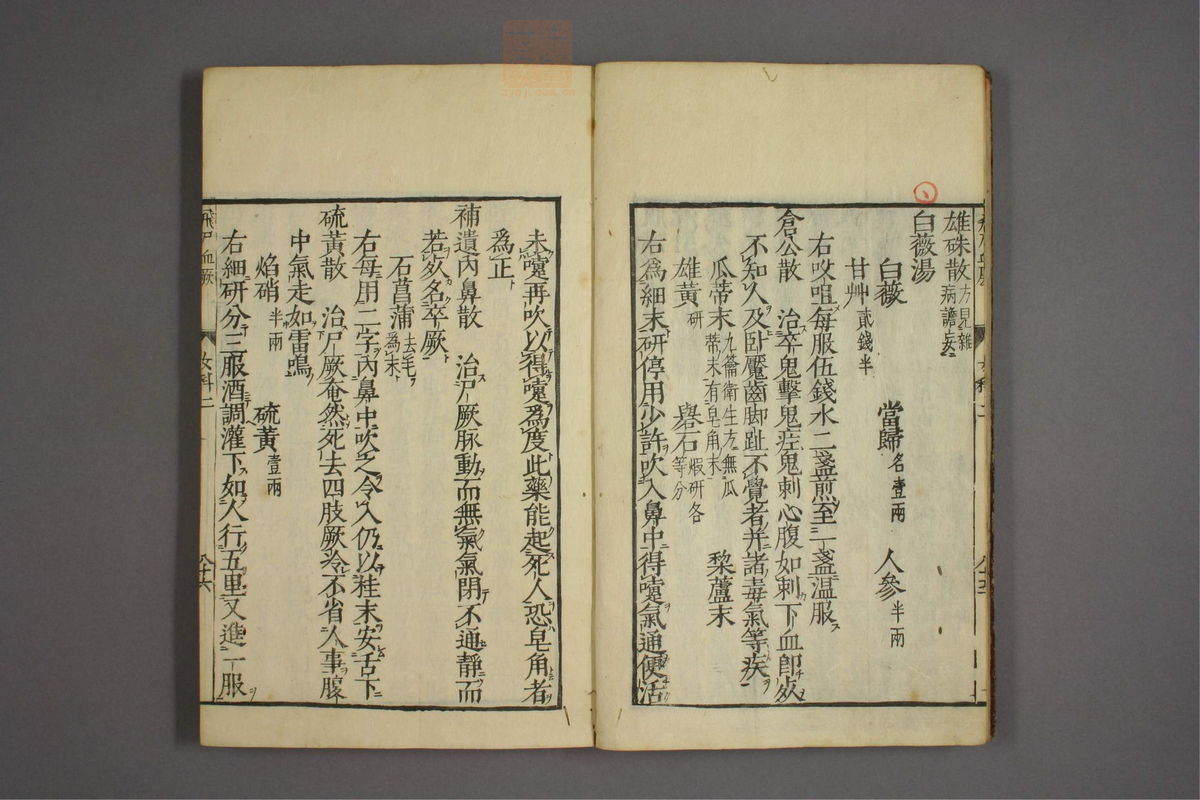 雄硃散方見雜病譫妄
白薇湯
白薇 當歸各壹兩 人參半兩
甘艸貳錢半
右㕮咀每服伍錢水二盞煎至一盞温服
倉公散 治卒鬼擊鬼疰鬼刺心腹如刺下血卽死
不知人及卧魘齒脚趾不覺者并諸毒氣等疾
瓜蒂末九籥衛生方無瓜蒂末有皂角末 黎蘆末
雄黃研 礜石煆研各等分
右爲細末研停用少許吹入鼻中得嚏氣通便活
未嚏再吹以得嚏爲度此藥能起死人恐皂角者
爲正
補遺內鼻散 治尸厥脉動而無氣氣閉不通靜而
若死名卒厥
石菖蒲去毛爲末
右每用二字內鼻中吹之令入仍以桂末安舌下
硫黃散 治尸厥奄然死去四肢厥冷不省人事腹
中氣走如雷鳴
焰硝半兩 硫黃壹兩
右細研分三服酒調灌下如人行五里又進一服
飛尸血厥 女科二